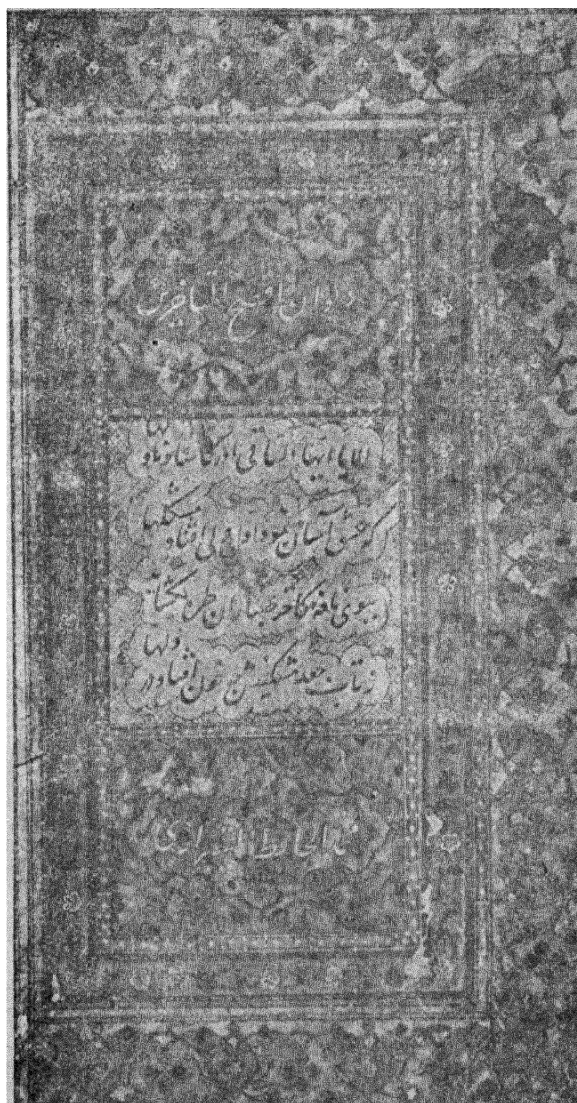 دیوان افصح المتاخرین
الا یا ایها الساقی ادر کاسا و ناولها
که عشق آسان نمود اول ولی افتاد مشکلها
ببوی نافه کاخر صبا زان طره بگشاید
ز تاب جعد مشکینش چه خون افتاد در دلها
الحافظ الشیرازی